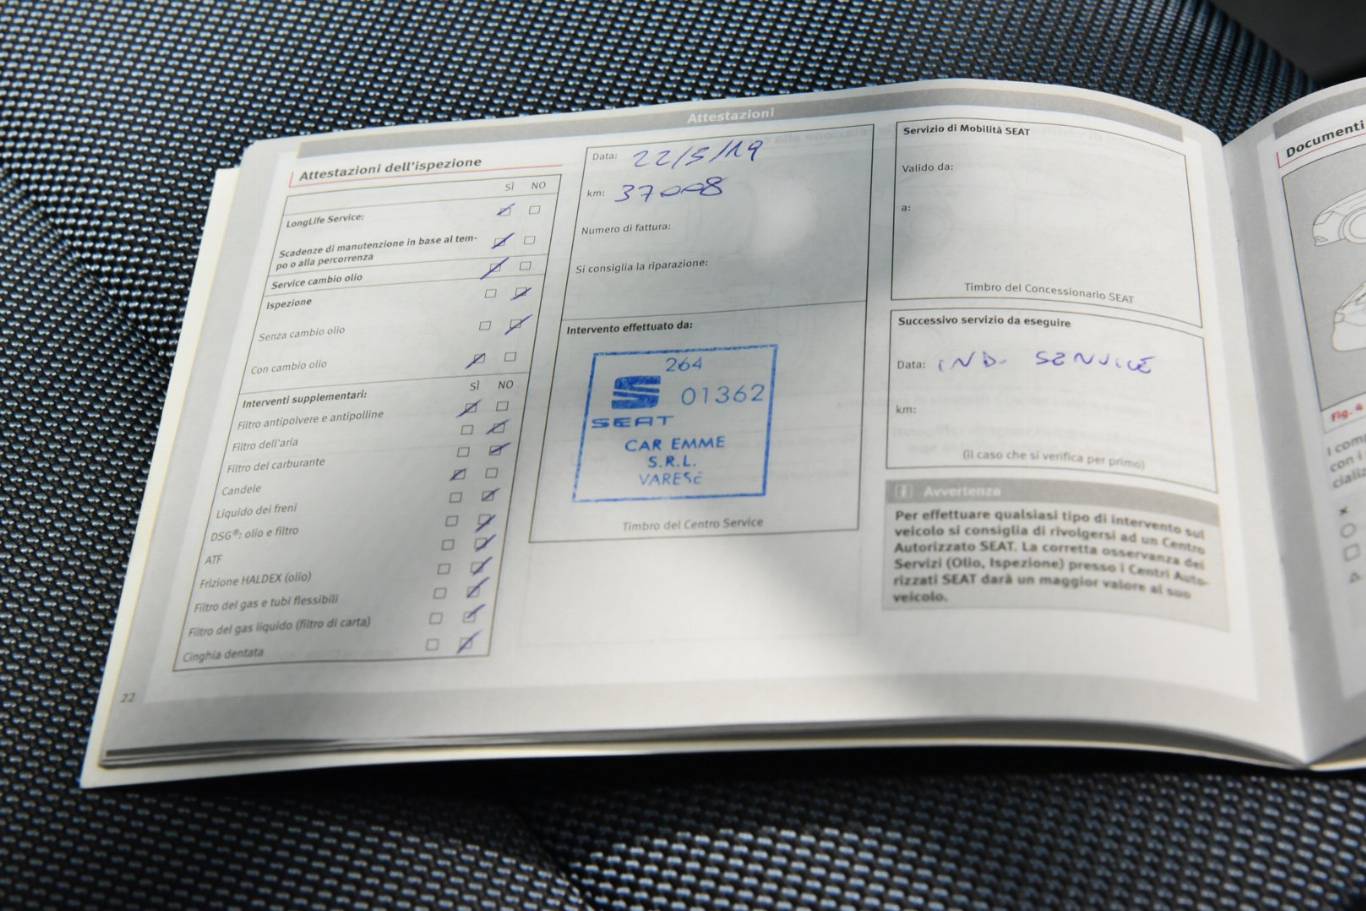 Attestazioni
Attestazioni dell'ispezione
SÌ NO
LongLife Service:
Scadenze di manutenzione in base al tem-
po o alla percorrenza
Service cambio olio
Ispezione
Senza cambio olio
Con cambio olio
Interventi supplementari:
SÌ NO
Filtro antipolvere e antipolline
Filtro dell'aria
Filtro del carburante
Candele
Liquido dei freni
DSG®: olio e filtro
ATF
Frizione HALDEX (olio)
Filtro del gas e tubi flessibili
Filtro del gas liquido (filtro di carta)
Cinghia dentata
22
Data: 22/5/19
km: 37008
Numero di fattura:
Si consiglia la riparazione:
Intervento effettuato da:
264
01362
SEAT
CAR EMME
S.R.L.
VARESE
Timbro del Centro Service
Servizio di Mobilità SEAT
Valido da:
a:
Timbro del Concessionario SEAT
Successivo servizio da eseguire
Data: IND. SERVICE
km:
(il caso che si verifica per primo)
Avvertenza
Per effettuare qualsiasi tipo di intervento sul
veicolo si consiglia di rivolgersi ad un Centro
Autorizzato SEAT. La corretta osservanza dei
Servizi (Olio, Ispezione) presso i Centri Auto-
rizzati SEAT darà un maggior valore al suo
veicolo.
Documenti
Fig. a
I com
con i
ciali